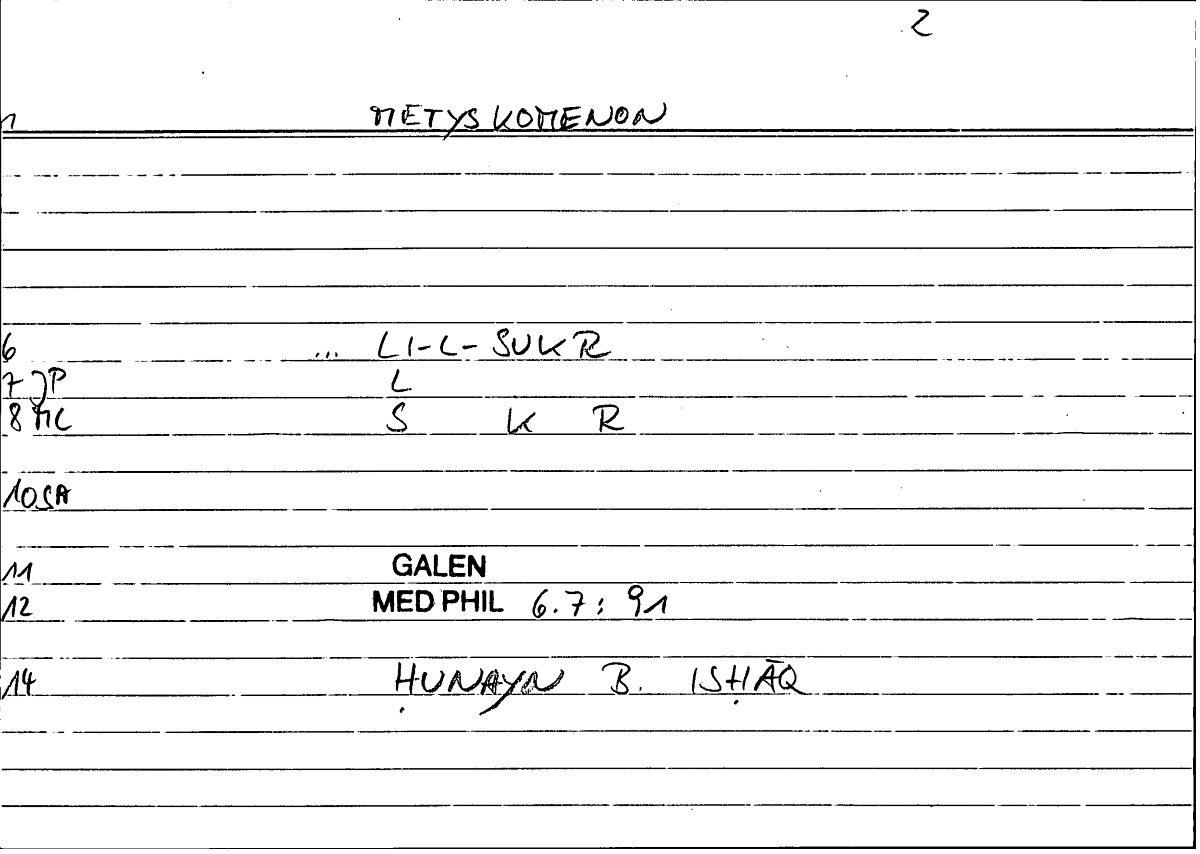 2
1 METYSKOMENON
6 ... LI-L-SUKR
7 JP L
8 MC S K R
10 SA
11 GALEN
12 MED PHIL 6.7: 91
14 ḤUNAYN B. ISḤĀQ